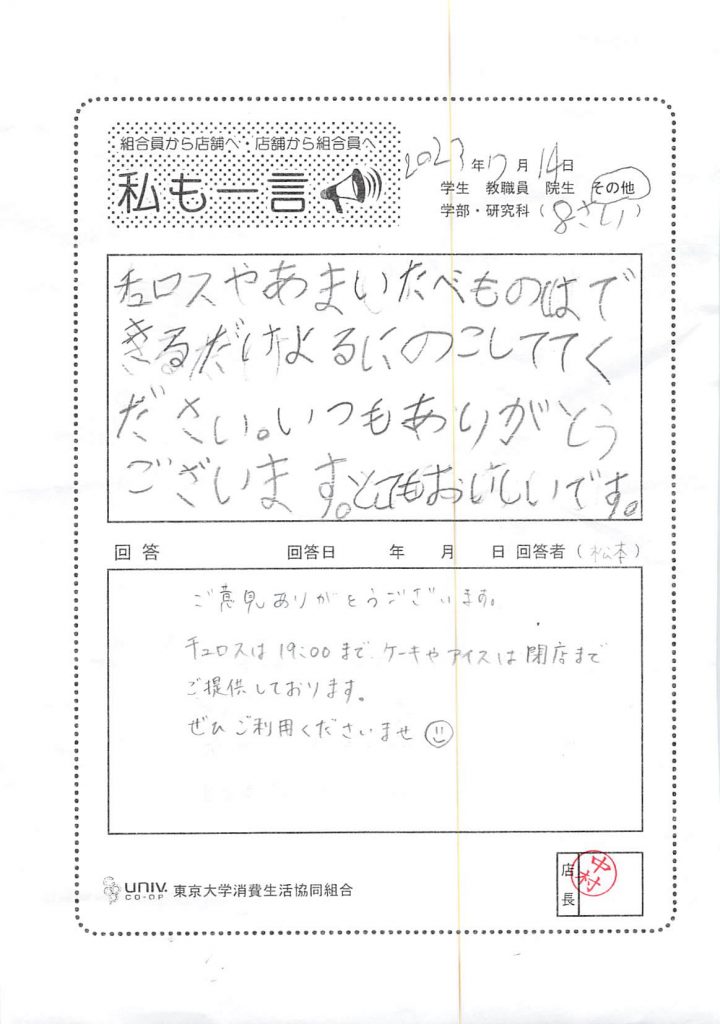 組合員から店舗へ・店舗から組合員へ
私も一言
2023年12月14日
学生 教職員 院生 その他
学部・研究科(8さい)
チュロスやあまいたべものはで
きるだけよるにのこしててく
ださい。いつもありがとう
ございます。とてもおいしいです。
回答 回答日 年 月 日 回答者(松本)
ご意見ありがとうございます。
チュロスは19:00まで、ケーキやアイスは閉店まで
ご提供しております。
ぜひご利用くださいませ
UNIV. CO-OP 東京大学消費生活協同組合
店長 中村